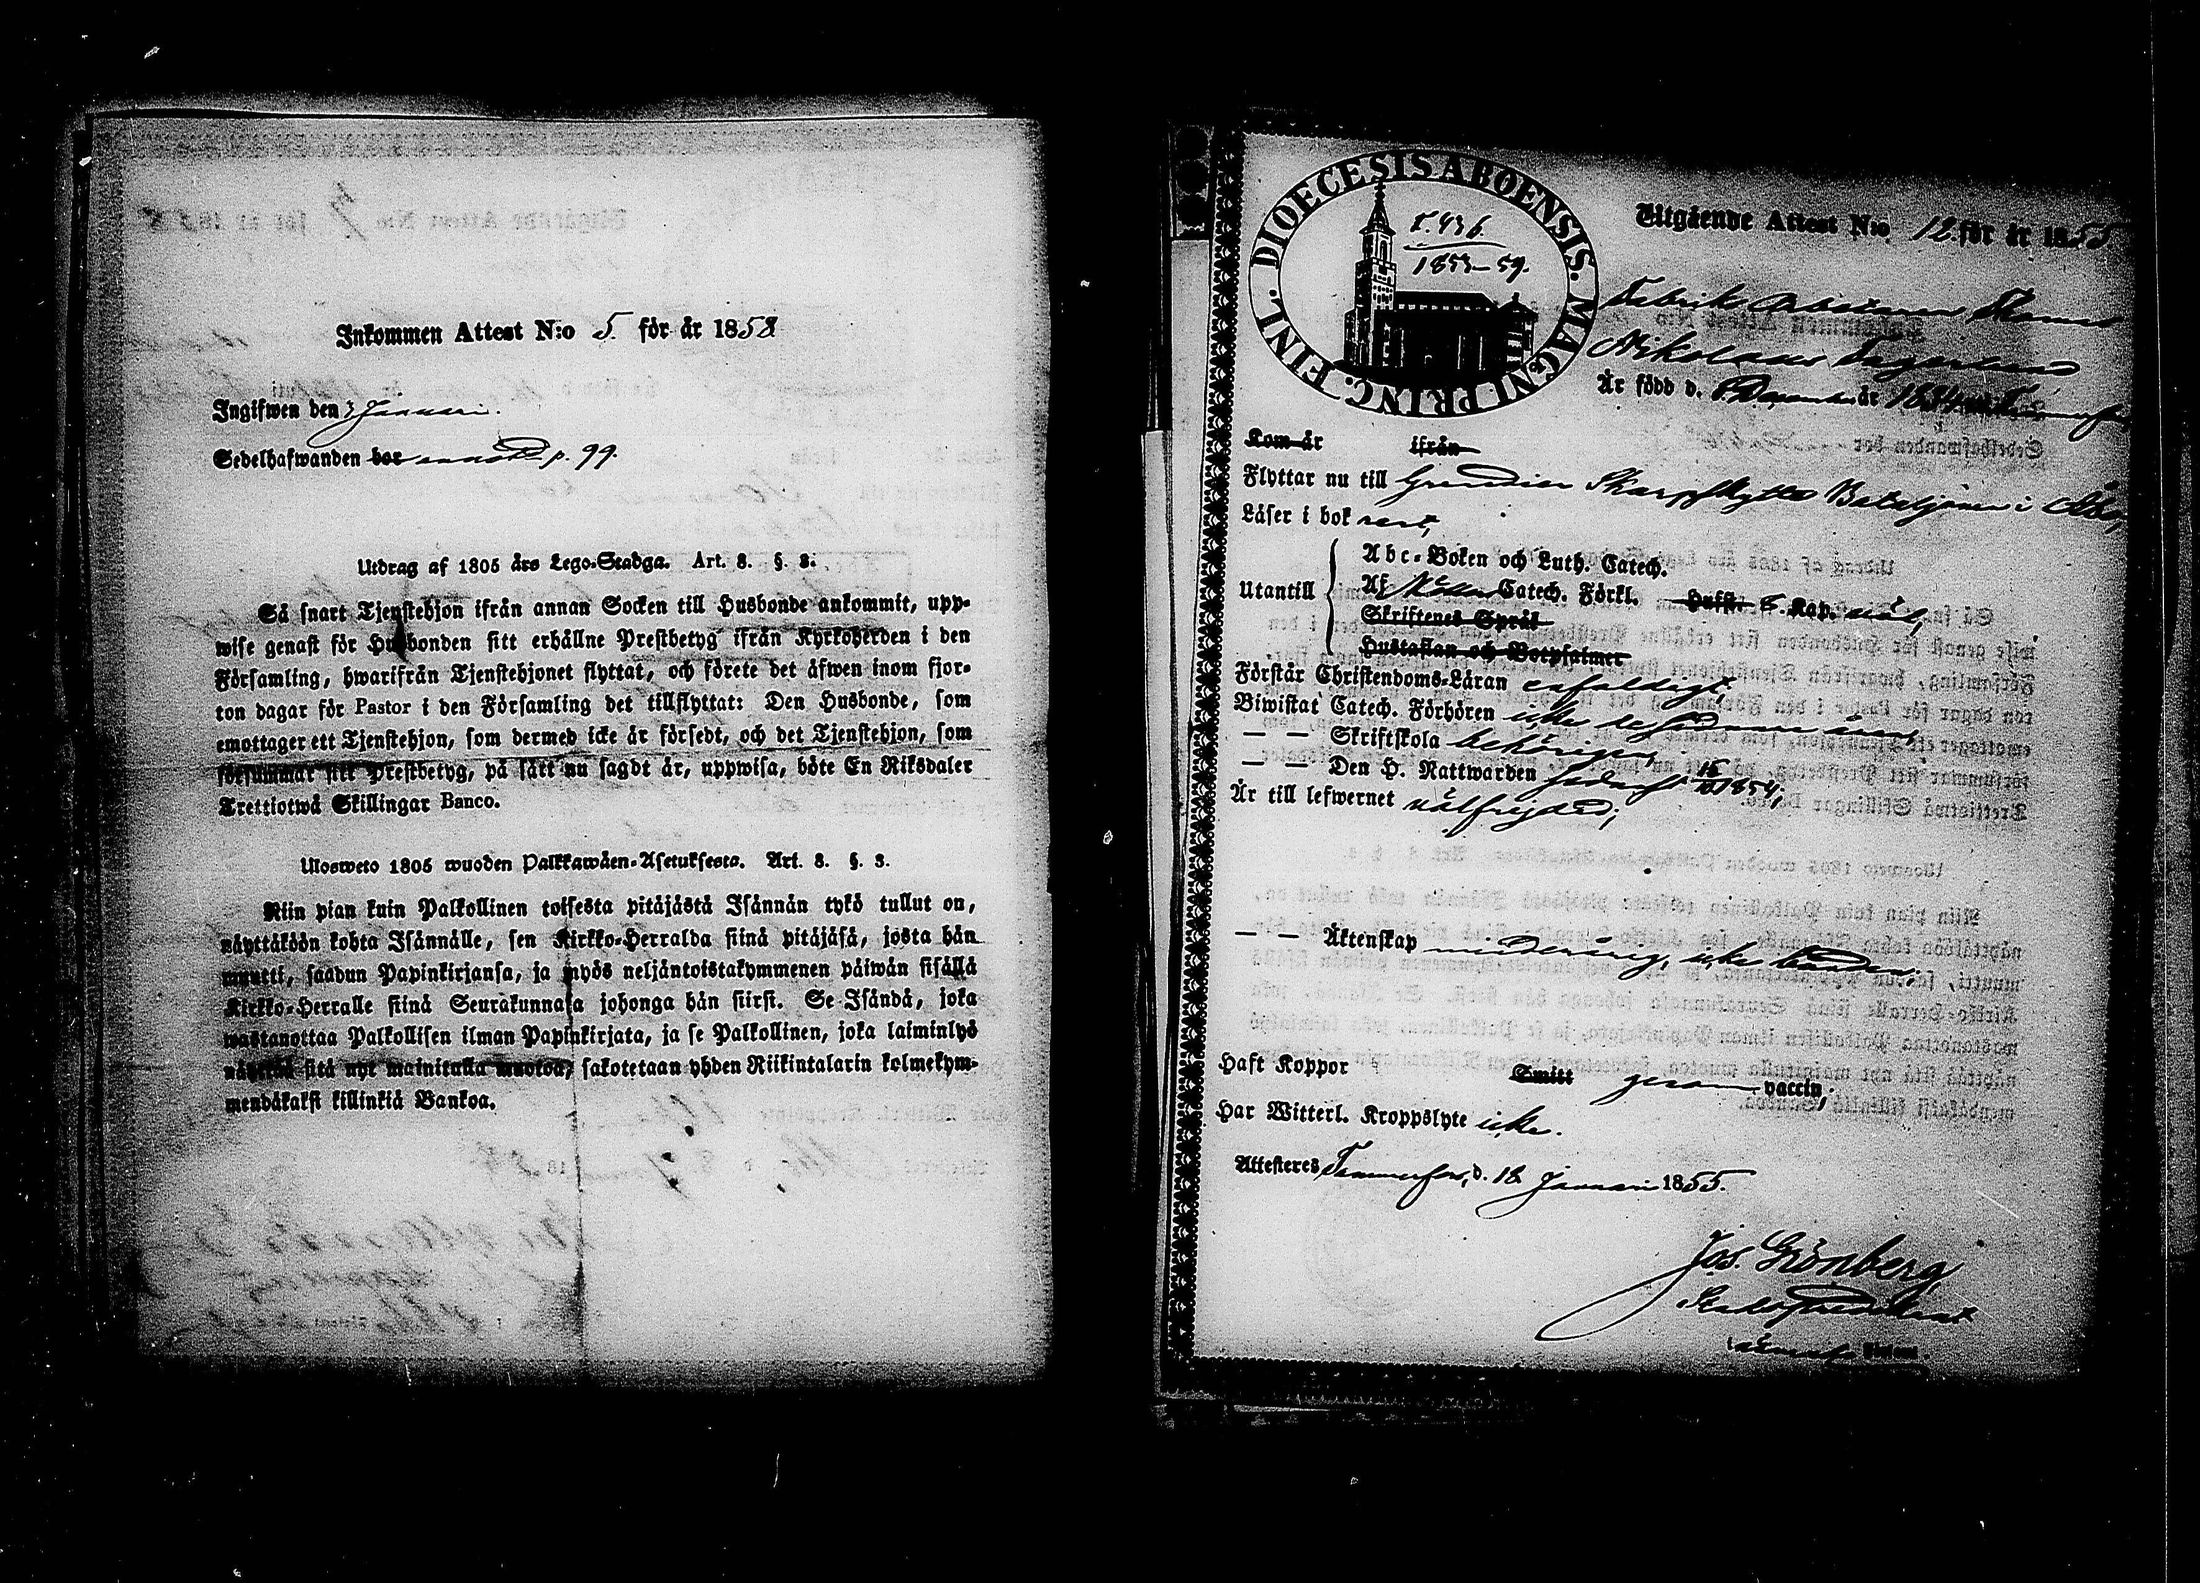 Inkommen Attest N:o 5. för år 1858
Ingifwen den 3 Januari.
Sedelhafwanden har p. 99.
Utdrag af 1805 års Lego-Stadga. Art. 8. §. 3.
Så snart Tjenstehjon ifrån annan Socken till Husbonde ankommit, upp-
wise genast för Husbonden sitt erhållne Prestbetyg ifrån Kyrkoherden i den
Församling, hwarifrån Tjenstehjonet flyttat, och förete det äfwen inom fjor-
ton dagar för Pastor i den Församling det tillflyttat: Den Husbonde, som
emottager ett Tjenstehjon, som dermed icke är försedt, och det Tjenstehjon, som
försummar sitt Prestbetyg, på sätt nu sagdt är, uppwisa, böte En Riksdaler
Trettiotwå Skillingar Banco.
Ulosweto 1805 wuoden Palkkawäen-Asetuksesta. Art. 8. §. 3.
Niin pian kuin Palkollinen toisesta pitäjästä Isännän tykö tullut on,
näyttäköön kohta Isännälle, sen Kirkko-Herralda siinä pitäjäsä, josta hän
muutti, saadun Papinkirjansa, ja myös neljäntoistakymmenen päiwän sisällä
Kirkko-Herralle siinä Seurakunnasa johonga hän siirsi. Se Isändä, joka
wastanottaa Palkollisen ilman Papinkirjata, ja se Palkollinen, joka laiminlyö
näyttää sitä nyt mainitulla muotoa, sakotetaan yhden Riikintalarin kolmekym-
mendäkaksi killinkiä Bankoa.
DIOECESIS ABOENSIS. MAGNI PRINC. FINL.
T. 436.
1853–59.
Utgående Attest N:o 12. för år 1855
Fabriks Arbetaren
Nikolaus Fagerlund
Är född d. 6 December år 1834 i Tammerfors
Kom år ifrån
Flyttar nu till Grenadier Skarpskytte Bataljonen i Åbo,
Läser i bok rent,
Utantill
Abc-Boken och Luth. Catech.
Af Catech. Förkl. Hufst. Kap. väl,
Skriftenes Språk
Hustaflan och Botpsalmer
Förstår Christendoms-Läran enfaldigt
Biwistat Catech. Förhören icke
— — Skriftskola behörigen,
— — Den H. Nattwarden sednast 1854,
Är till lefwernet välfrejdad,
— — Äktenskap minderårig, icke bunden.
Haft Koppor Smitt genom vaccin,
Har Witterl. Kroppslyte icke.
Attesteres Tammerfors, d. 18 Januari 1855.
Jos. Grönberg